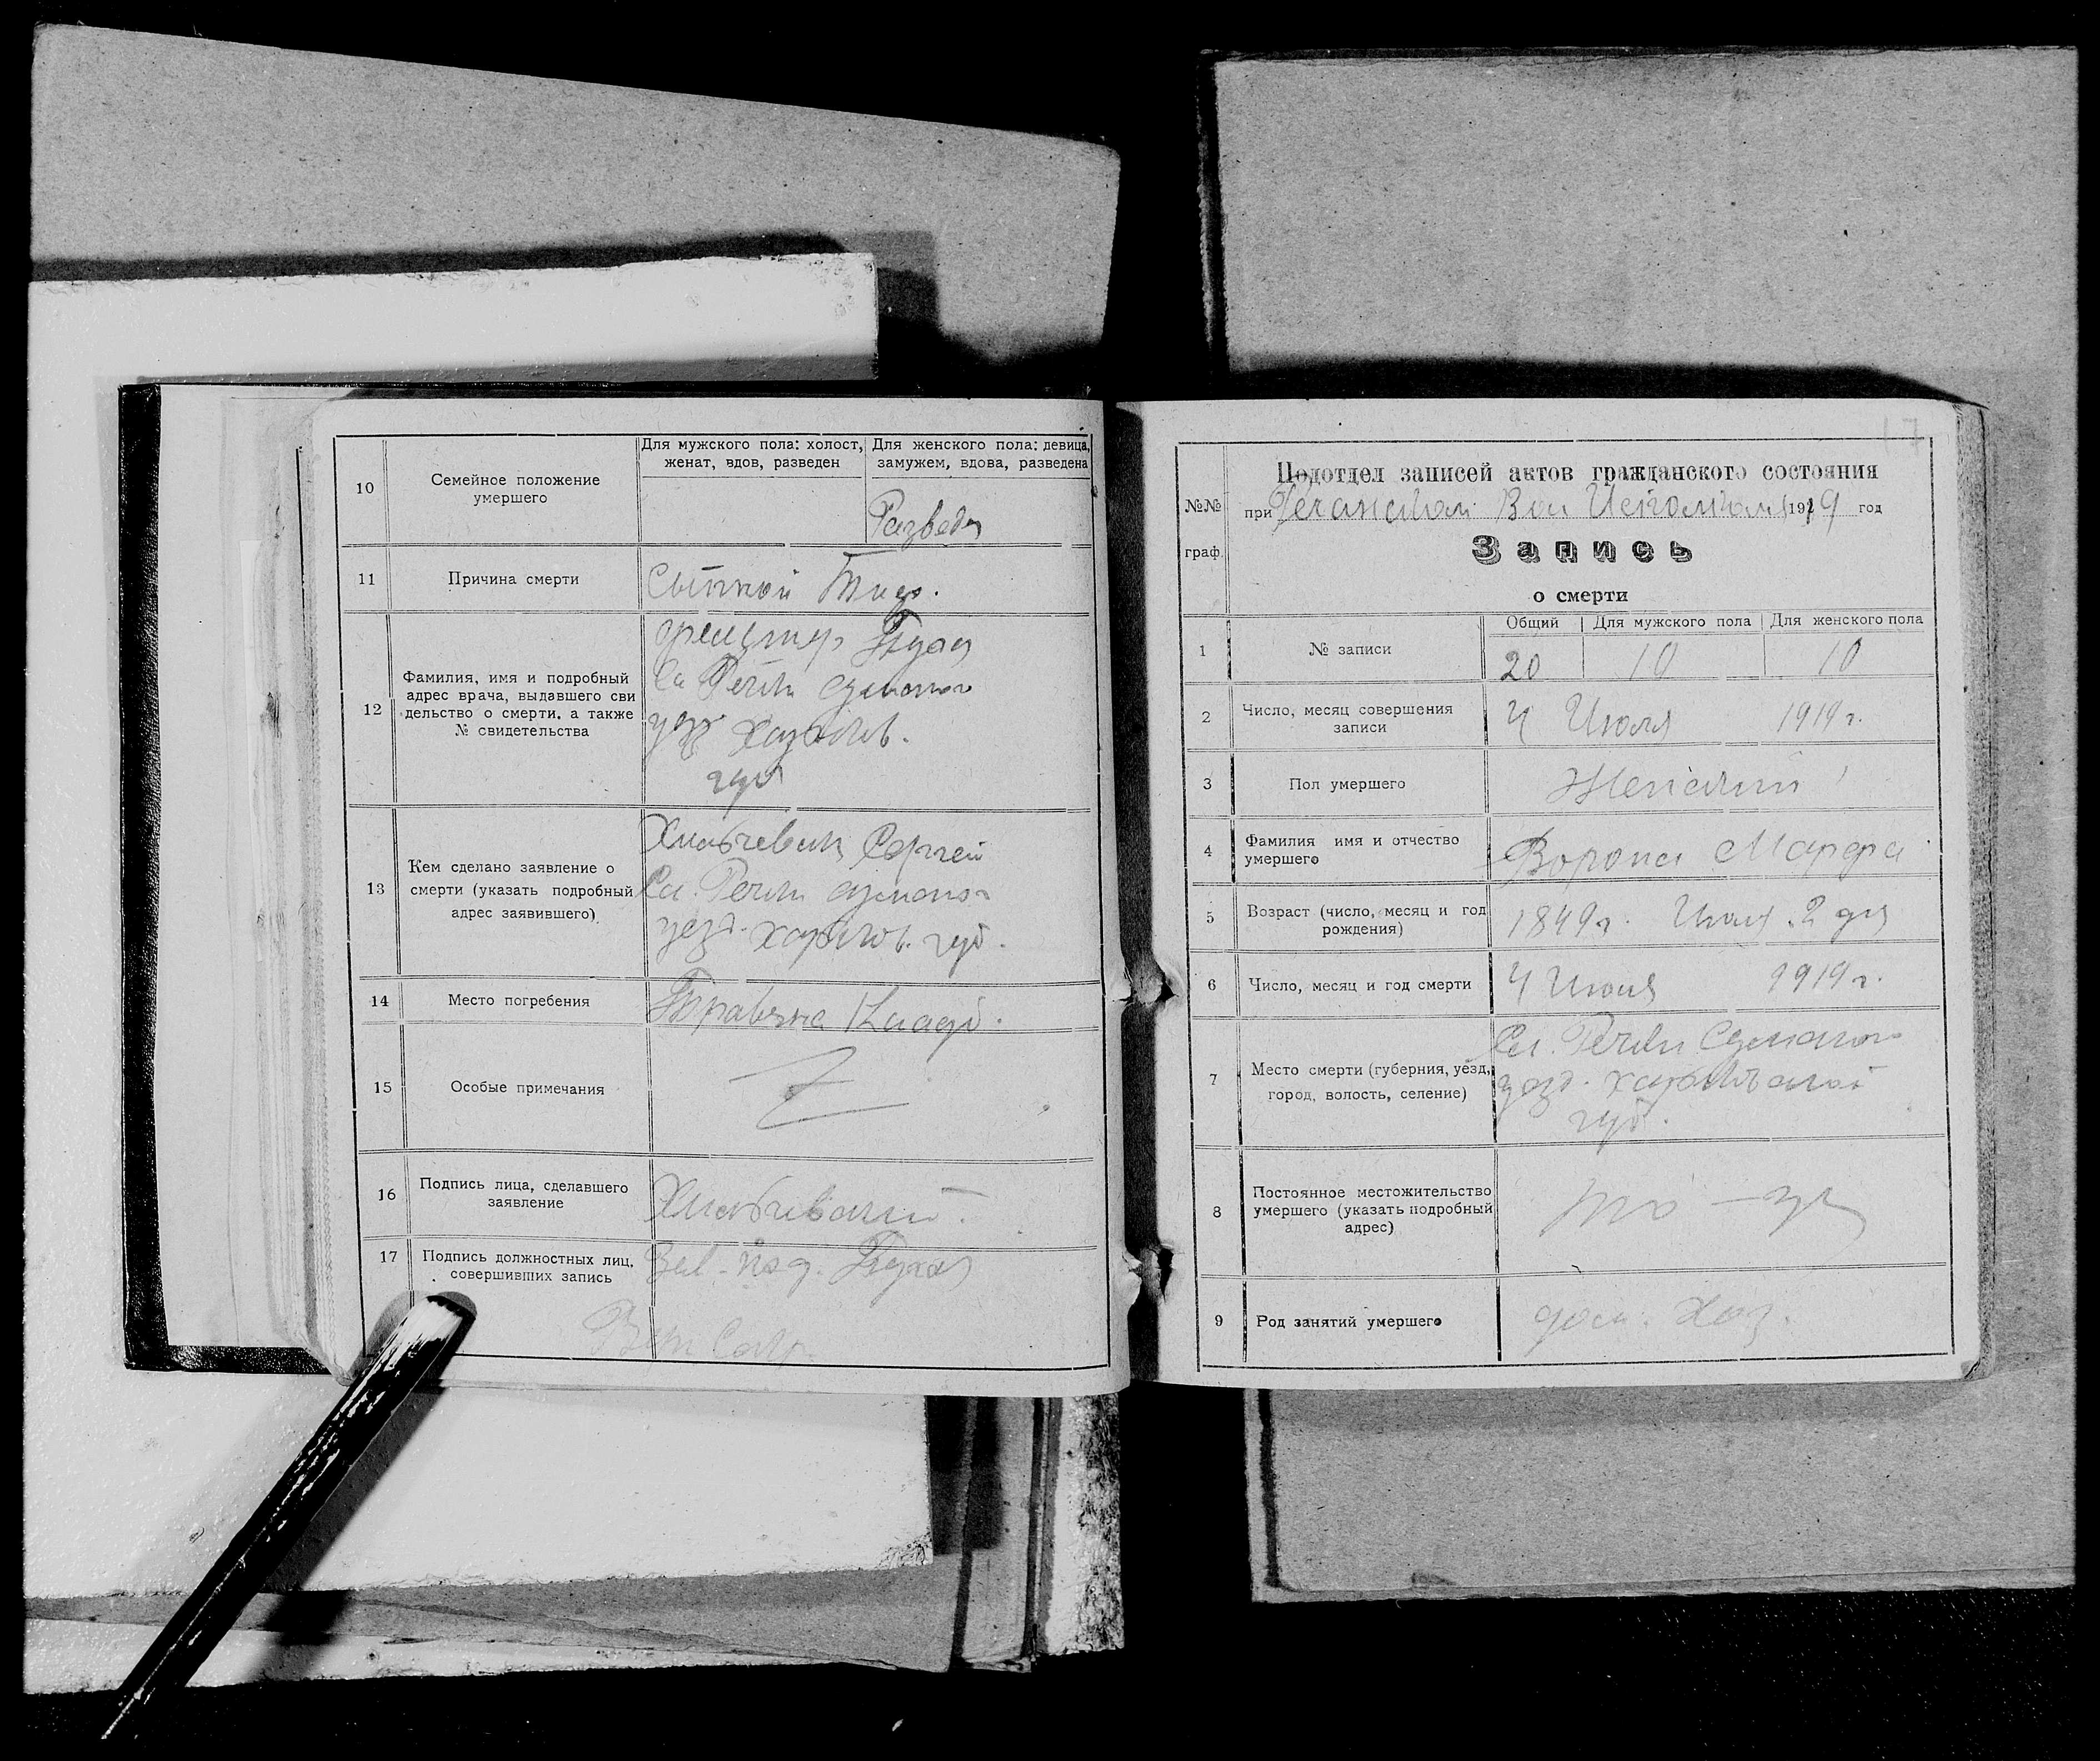 10
Семейное положение
умершего
Для мужского пола: холост,
женат, вдов, разведен
Для женского пола: девица,
замужем, вдова, разведена
Разведа
11
Причина смерти
Сыпной Тиф.
12
Фамилия, имя и подробный
адрес врача, выдавшего сви
дельство о смерти, а также
№ свидетельства
Сл Речки Сумского
уезд Харьков.
губ
13
Кем сделано заявление о
смерти (указать подробный
адрес заявившего)
Сергей
Сл. Речки Сумског
уезд. Харьков. губ.
14
Место погребения
Кладб.
15
Особые примечания
16
Подпись лица, сделавшего
заявление
17
Подпись должностных лиц,
совершивших запись
Зав. под.
17
№№
граф.
Подотдел записей актов гражданского состояния
при Речанском Вол Исполком 1919 год
Запись
о смерти
1
№ записи
Общий
Для мужского пола
Для женского пола
20
10
10
2
Число, месяц совершения
записи
4 Июля 1919 г.
3
Пол умершего
Женский
4
Фамилия имя и отчество
умершего
Ворона Марфа
5
Возраст (число, месяц и год
рождения)
1849 г. Июля 2 дня
6
Число, месяц и год смерти
4 Июля 1919 г.
7
Место смерти (губерния, уезд,
город, волость, селение)
Сл. Речки Сумского
уезд. Харьковской
губ.
8
Постоянное местожительство
умершего (указать подробный
адрес)
9
Род занятий умершего
дом. хоз.